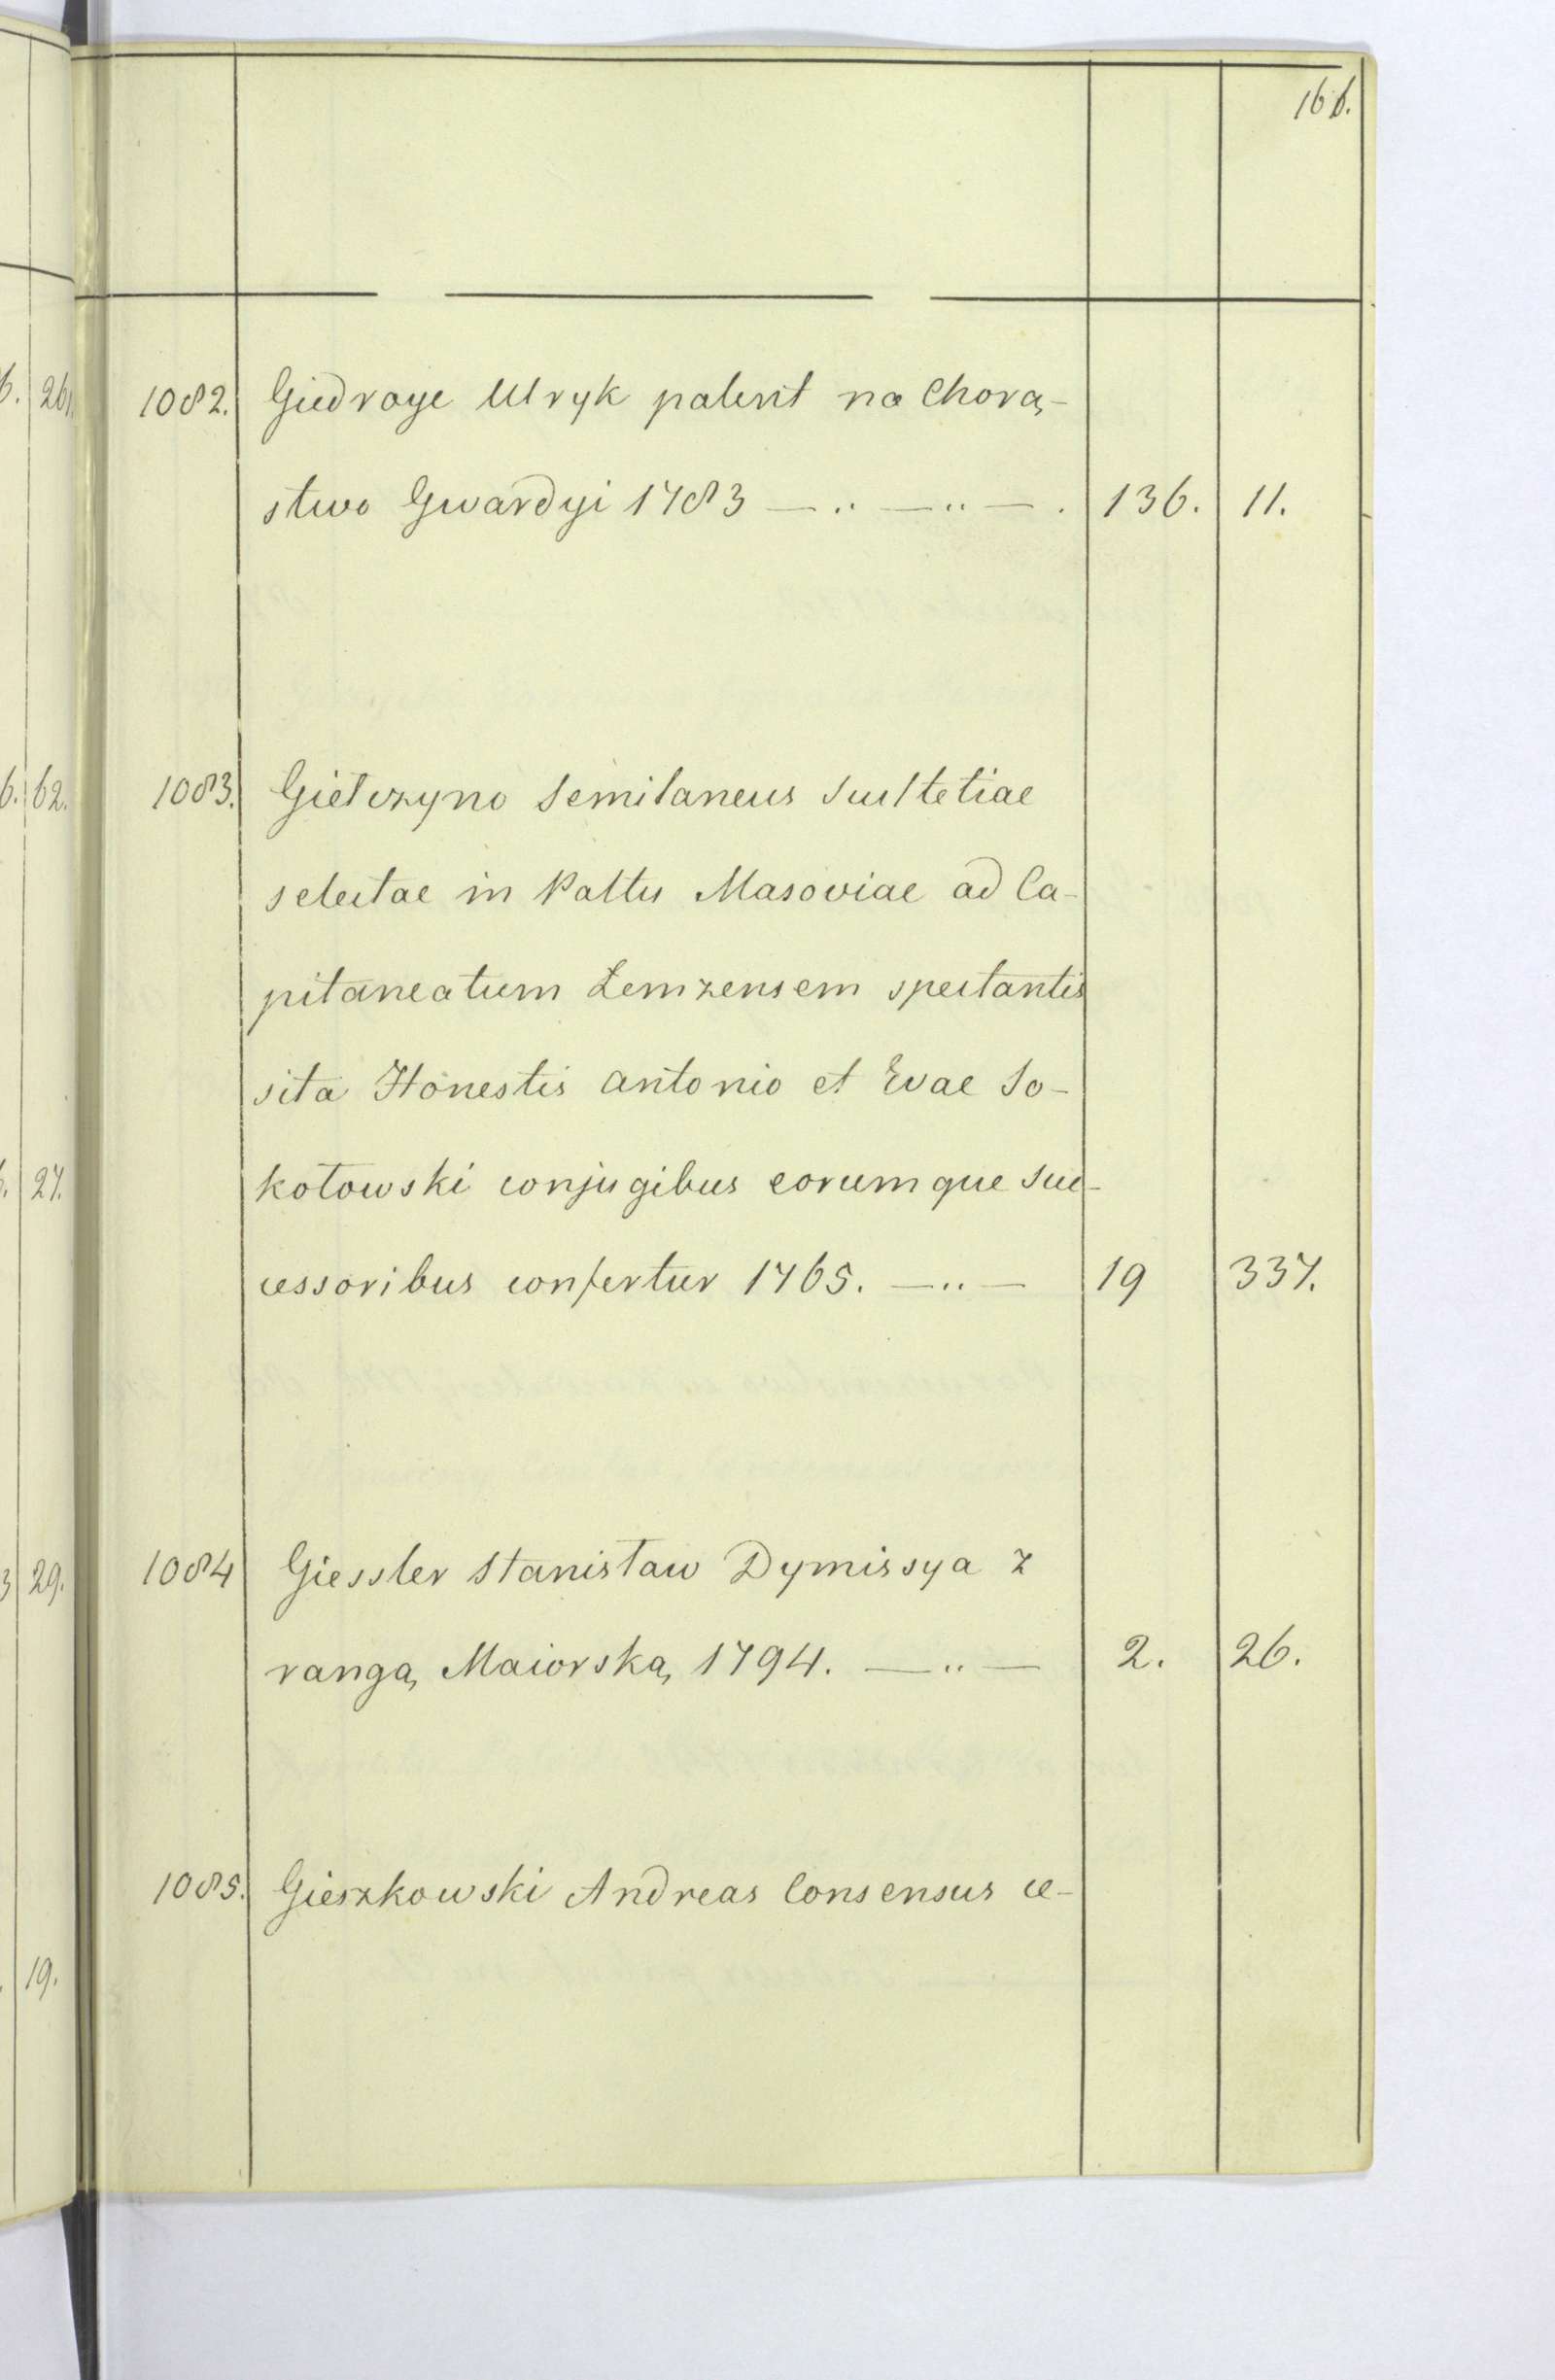 166.
1082. Giedroyc Ulryk patent na Chorą-
stwo Gwardyi 1783 — „ — „ — . 136. 11.
1083. Giełczyno Semilaneus Scultetiae
selectae in Pattu Masoviae ad Ca-
pitaneatum Łemzensem spectantis
sita Honestis Antonio et Evae So-
kołowski conjugibus eorumque suc-
cessoribus confertur 1765. — „ — 19 337.
1084 Giessler Stanisław Dymissya z
rangą Maiorską 1794. — „ — 2. 26.
1085. Gieszkowski Andreas Consensus ce-
6. 261.
6. 62.
27.
3 29.
19.